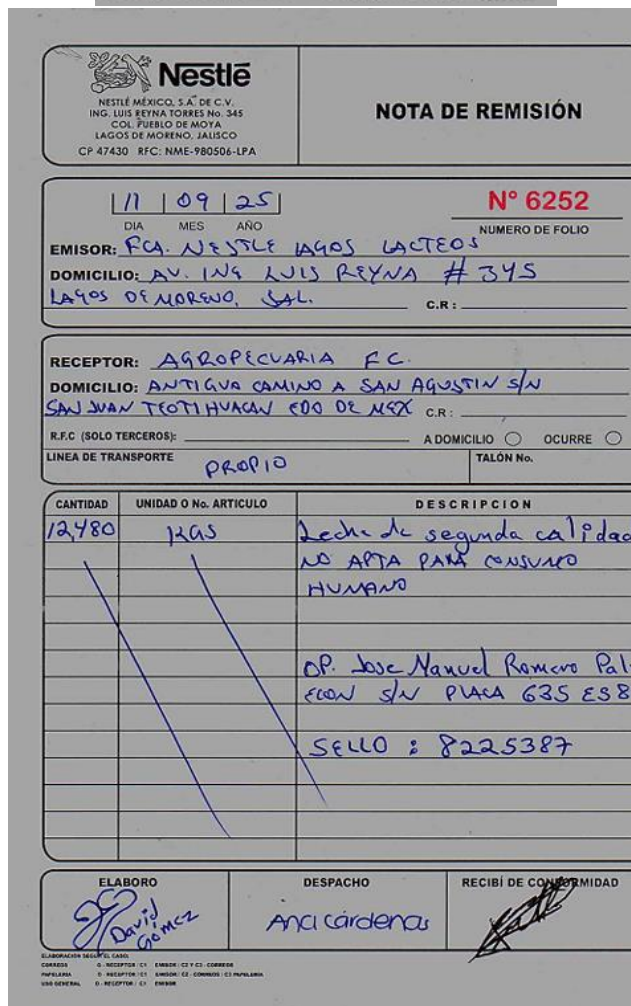 Nestlé
NESTLÉ MÉXICO, S.A. DE C.V.
ING. LUIS REYNA TORRES No. 345
COL. PUEBLO DE MOYA
LAGOS DE MORENO, JALISCO
CP 47430 RFC: NME-980506-LPA
NOTA DE REMISIÓN
11 09 25
DIA MES AÑO
N° 6252
NUMERO DE FOLIO
EMISOR: FCA. NESTLE LAGOS LACTEOS
DOMICILIO: AV. ING LUIS REYNA # 345
LAGOS DE MORENO, JAL. C.R :
RECEPTOR: AGROPECUARIA F.C.
DOMICILIO: ANTIGUO CAMINO A SAN AGUSTIN S/N
SAN JUAN TEOTIHUACAN EDO DE MEX C.R :
R.F.C (SOLO TERCEROS): A DOMICILIO OCURRE
LINEA DE TRANSPORTE PROPIO TALÓN No.
CANTIDAD UNIDAD O No. ARTICULO DESCRIPCION
12,480 KGS Leche de segunda calidad
NO APTA PARA CONSUMO
HUMANO
OP. Jose Manuel Romero Pal
ECON S/N PLACA 635 ES8
SELLO : 8225387
ELABORO DESPACHO RECIBÍ DE CONFORMIDAD
David Gómez Ana Cárdenas
ELABORACIÓN SEGÚN EL CASO:
CORREOS O - RECEPTOR / C1 EMISOR / C2 Y C3 - CORREOS
PAPELERIA O - RECEPTOR / C1 EMISOR / C2 - CORREOS / C3 PAPELERIA
USO GENERAL O - RECEPTOR / C1 EMISOR